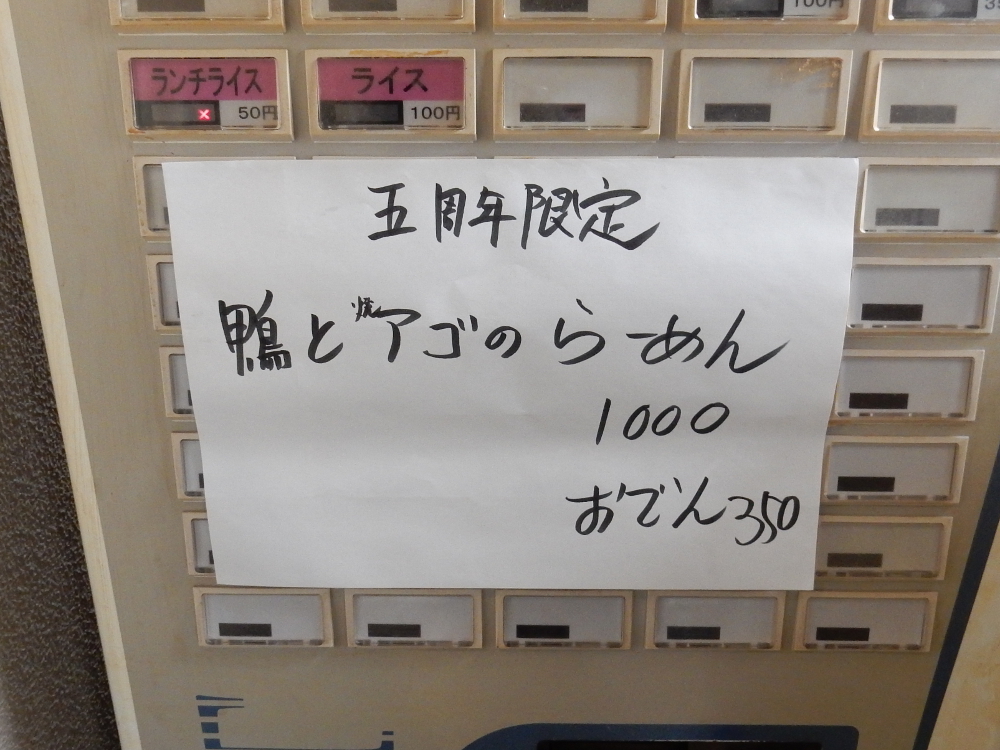 100円
35
ランチライス
50円
ライス
100円
五周年限定
鴨と焼アゴのらーめん
1000
おでん350